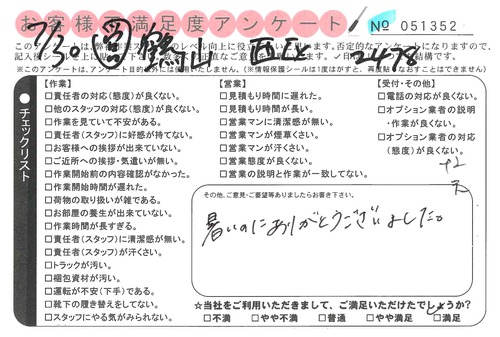 お客様満足度アンケート
№ 051352
7/30 圓鶴山 西区 2478
このアンケートは、弊
記入後シール
※このアンケートは、アンケート目的以外には使用いたしません。(※情報保護シールは1度はがすと、再度貼りなおすことはできません)
チェックリスト
【作業】
□責任者の対応(態度)が良くない。
□他のスタッフの対応(態度)が良くない。
□作業を見ていて不安がある。
□責任者(スタッフ)に好感が持てない。
□お客様への挨拶が出来ていない。
□ご近所への挨拶・気遣いが無い。
□作業開始前の内容確認がなかった。
□作業開始時間が遅れた。
□荷物の取り扱いが雑である。
□お部屋の養生が出来ていない。
□作業時間が長すぎる。
□責任者(スタッフ)に清潔感が無い。
□責任者(スタッフ)が汗くさい。
□トラックが汚い。
□梱包資材が汚い。
□運転が不安(下手)である。
□靴下の履き替えをしてない。
□スタッフにやる気がみられない。
【営業】
□見積もり時間に遅れた。
□見積もり時間が長い。
□営業マンに清潔感が無い。
□営業マンが煙草くさい。
□営業マンが汗くさい。
□営業態度が良くない。
□営業の説明と作業が一致してない。
【受付・その他】
□電話の対応が良くない。
□オプション業者の説明
・作業が良くない。
□オプション業者の対応
(態度)が良くない。
その他、ご意見・ご要望等ありましたらお書き下さい。
暑いのにありがとうございました。
☆当社をご利用いただきまして、ご満足いただけたでしょうか?
□不満 □やや不満 □普通 □やや満足 □満足